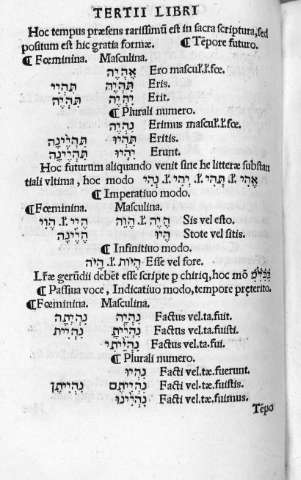 TERTII LIBRI
Hoc tempus præsens rarissimū est in sacra scriptura, sed
positum est hic gratis formæ. ¶ Tēpore futuro.
¶ Fœminina. Masculina.
אֶהְיֶה Ero mascul.ł.fœ.
תִּהְיִי תִּהְיֶה Eris.
תִּהְיֶה יִהְיֶה Erit.
¶ Plurali numero.
נִהְיֶה Erimus mascul.ł.fœ.
תִּהְיֶינָה תִּהְיוּ Eritis.
תִּהְיֶינָה יִהְיוּ Erunt.
Hoc futurum aliquando venit sine he litteræ substan
tiali vltima, hoc modo אֱהִי .ł. תְּהִי .ł. יְהִי .ł. נְהִי
¶ Imperatiuo modo.
¶ Fœminina. Masculina.
הֲיִי .ł. הֲוִי הֱיֵה .ł. הֱוֵה Sis vel esto.
הֱיֶינָה הֱיוּ Stote vel sitis.
¶ Infinitiuo modo.
הֱיוֹת .ł. הָיֹה Esse vel fore.
gerūdii debēt esse scripte p chiriq, hoc mō
¶ Passiua voce, Indicatiuo modo, tempore pręterito.
¶ Fœminina. Masculina.
נִהְיְתָה נִהְיָה Factus vel.ta.fuit.
נִהְיֵית נִהְיֵיתָ Factus vel.ta.fuisti.
נִהְיֵיתִי Factus vel.ta.fui.
¶ Plurali numero.
נִהְיוּ Facti vel.tæ.fuerunt.
נִהְיֵיתֶן נִהְיֵיתֶם Facti vel.tæ.fuistis.
נִהְיֵינוּ Facti vel.tæ.fuimus.
Tēpo